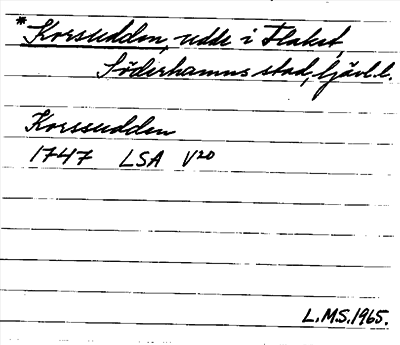 *Korsudden, udde i Flaket,
Söderhamns stad, Gävl.l.
Korssudden
1747 LSA V20
L.M.S. 1965.